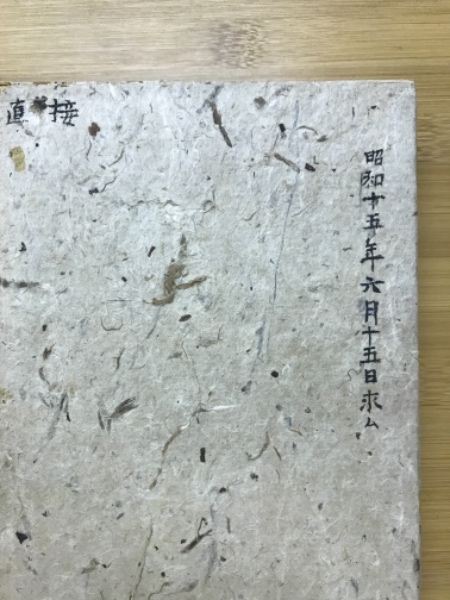 昭和十五年六月十五日求ム
直接